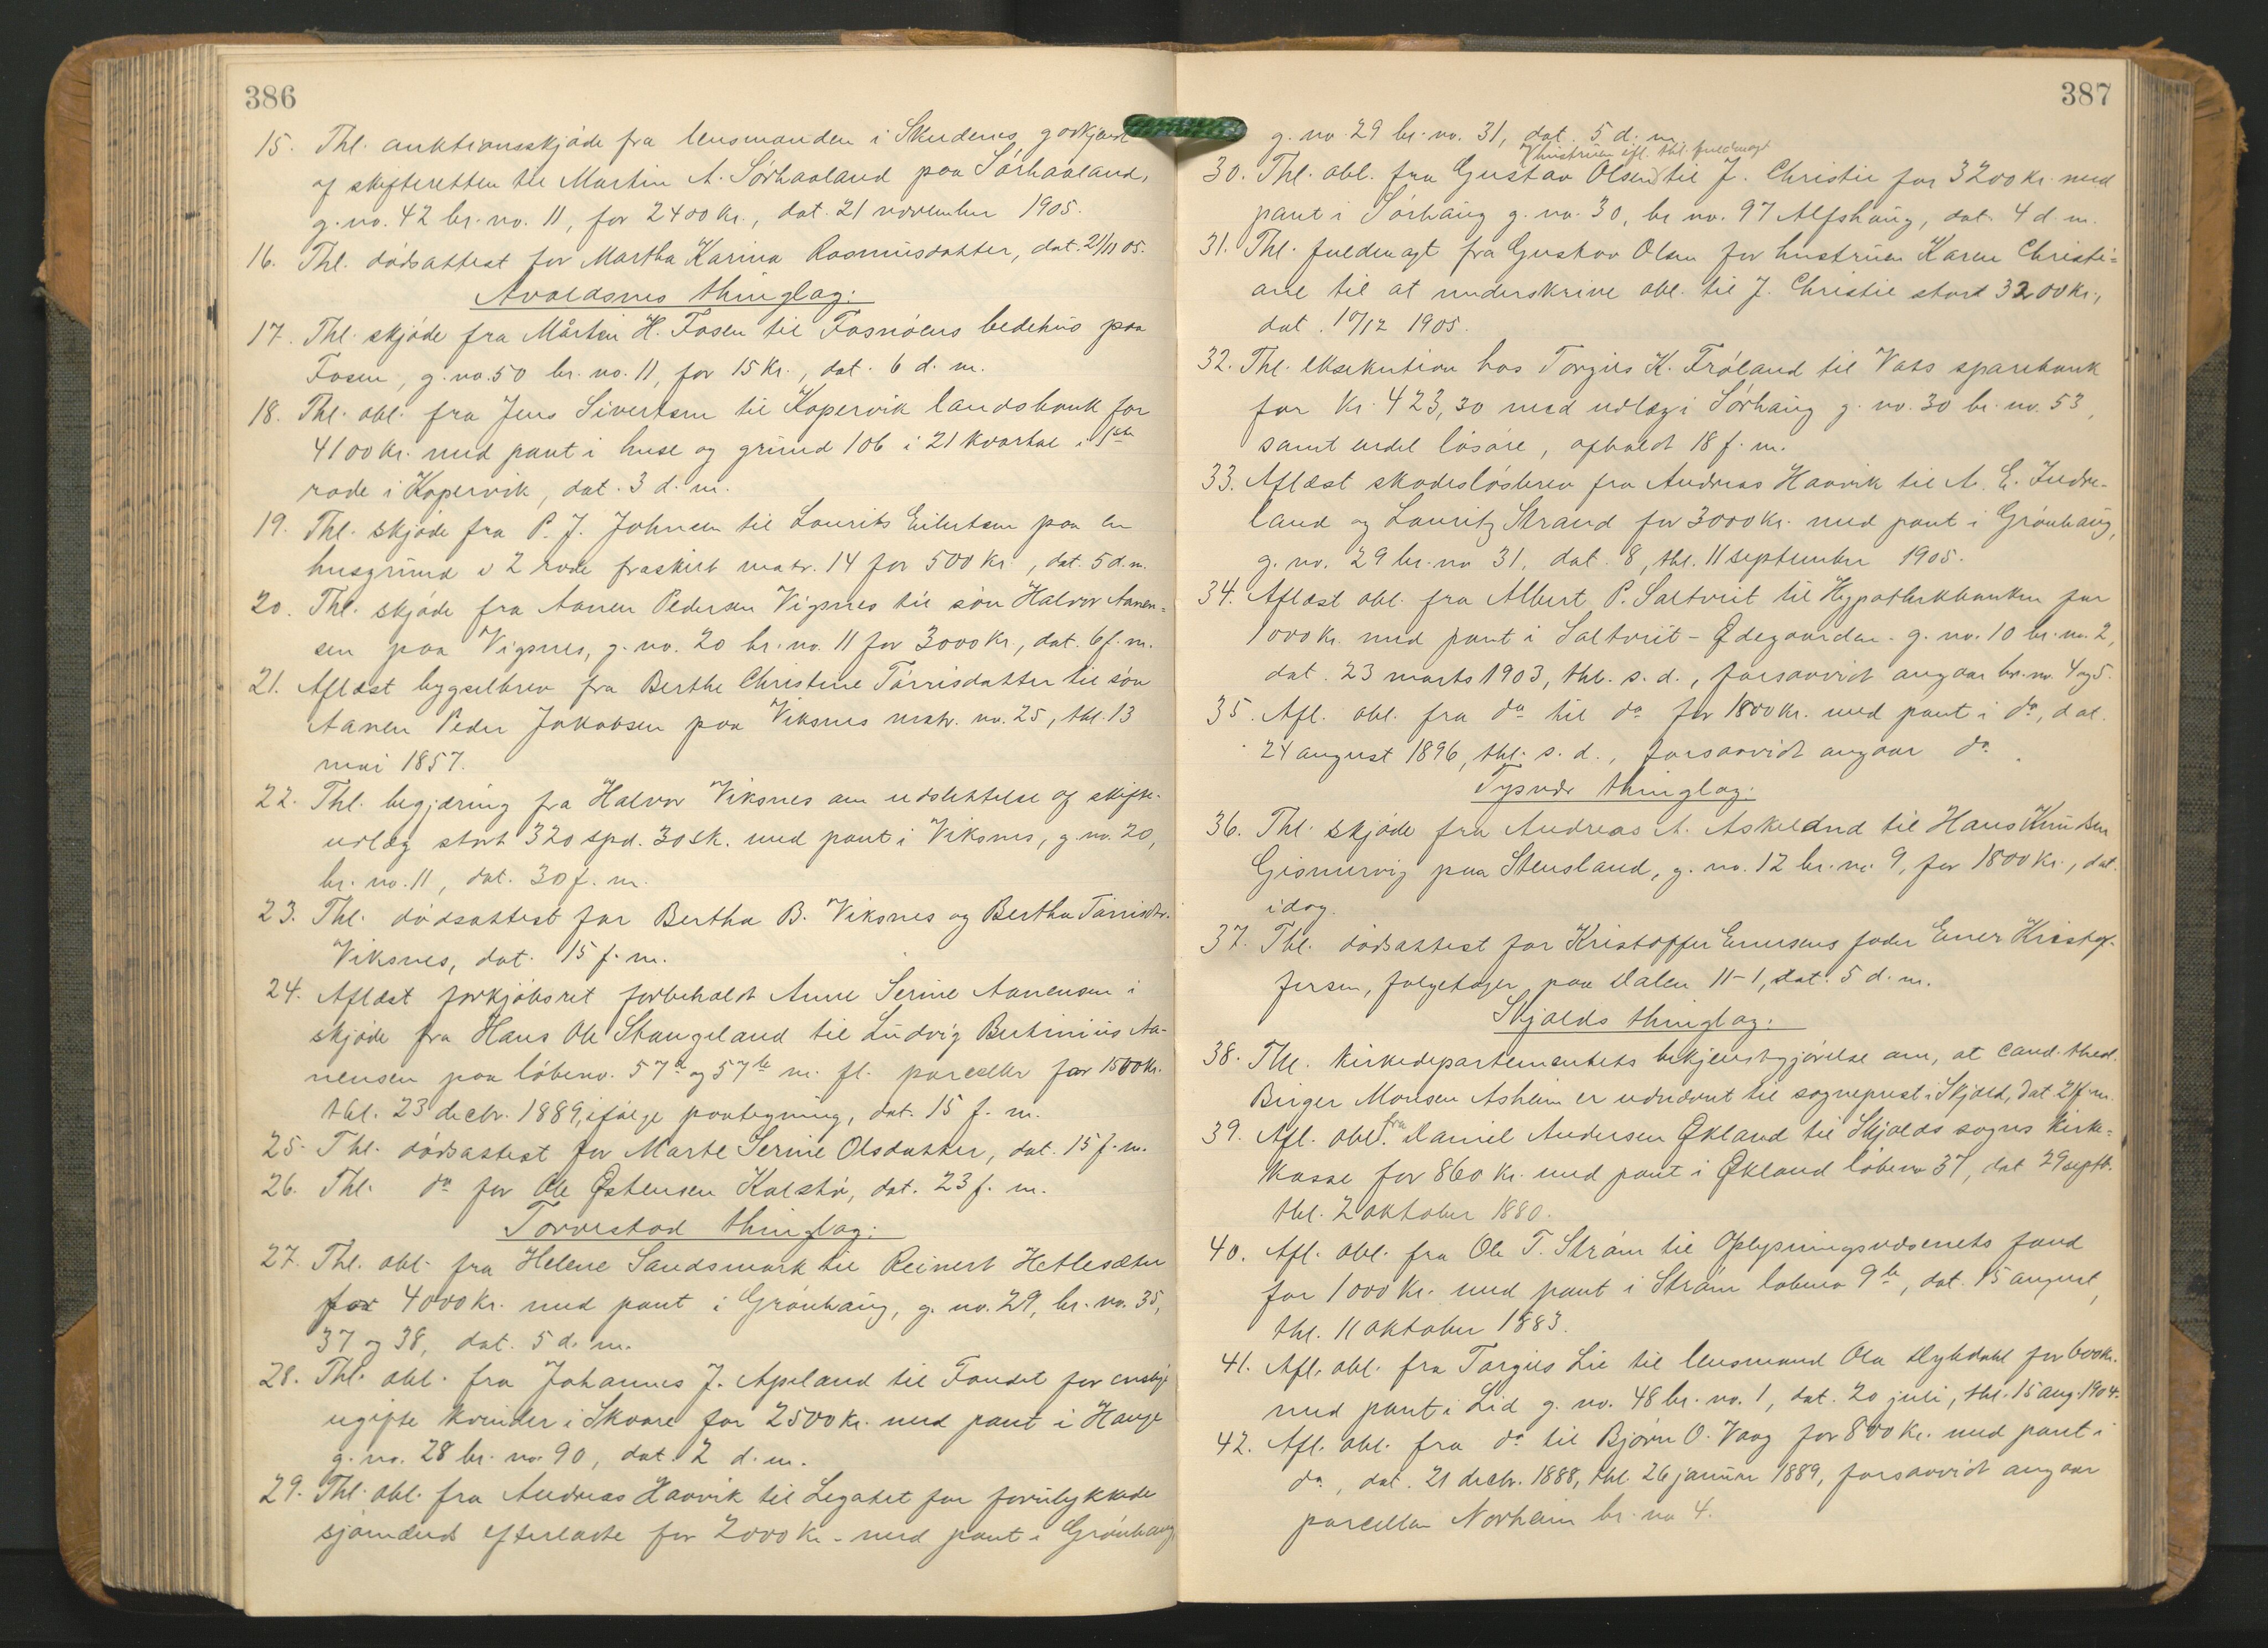 386
15. Thl. auktionsskjøde fra lensmanden i Skudenes, godkjendt
af skifteretten til Martin A. Sørhaaland paa Sørhaaland,
g. no. 42 br. no. 11, for 2400 kr., dat. 21 november 1905.
16. Thl. dødsattest for Martha Karina Rasmusdatter, dat. 21/11 05.
Avaldsnes thinglag:
17. Thl. skjøde fra Mårtin H. Fosen til Fosnøens bedehus paa
Fosen, g. no. 50 br. no. 11, for 15 kr., dat. 6 d. m.
18. Thl. obl. fra Jens Sivertsen til Kopervik landsbank for
4100 kr. med pant i huse og grund 106 i 21 kvartal i 1ste
rode i Kopervik, dat. 3 d. m.
19. Thl. skjøde fra P. J. Johnsen til Lourits Eilertsen paa en
husgrund i 2 rode fraskilt matr. 14 for 500 kr., dat. 5 d. m.
20. Thl. skjøde fra Aanen Pedersen Vigsnes til søn Halvor Aanen-
sen paa Vigsnes, g. no. 20 br. no. 11 for 3000 kr, dat. 6 f. m.
21. Aflæst bygselbrev fra Berthe Christine Tørrisdatter til søn
Aanen Peder Jakobsen paa Viksnes matr. no. 25, thl. 13
mai 1857.
22. Thl. begjæring fra Halvor Viksnes om udslettelse af skifte-
udlæg stort 320 spd. 30 sk. med pant i Viksnes, g. no. 20,
br. no. 11, dat. 30 f. m.
23. Thl. dødsattest for Bertha B. Viksnes og Bertha Tørrisdtr.
Viksnes, dat. 15 f. m.
24. Aflæst forkjøbsret forbeholdt Anne Serine Aanensen i
skjøde fra Hans Ole Stangeland til Ludvig Bertinius Aa-
nensen paa løbeno. 57a og 57b m. fl. parceller for 1500 kr.
thl. 23 decbr. 1889, ifølge paategning, dat. 15 f. m.
25. Thl. dødsattest for Marte Serine Olsdatter, dat. 15 f. m.
26. Thl. do for Ole Østensen Kalstø, dat. 23 f. m.
Torvestad thinglag:
27. Thl. obl. fra Helene Sandsmark til Reinert Hetlesæter
for 4000 kr. med pant i Grønhaug, g. no. 29, br. no. 35,
37 og 38, dat. 5 d. m.
28. Thl. obl. fra Johannes J. Apeland til Fondet for enslige
ugifte kvinder i Skaare for 2500 kr. med pant i Hauge
g. no. 28 br. no. 90, dat. 2 d. m.
29. Thl. obl. fra Andreas Haavik til Legatet for forulykkede
sjømænds efterladte for 2000 kr. med pant i Grønhaug,
387
g. no 29 br. no. 31, dat. 5 d. m.
hustruen ifl. thl. fuldmagt
30. Thl. obl. fra Gustav Olsen til J. Christie for 3200 kr. med
pant i Sørhaug g. no. 30, br. no. 97 Alfshaug, dat. 4 d. m.
31. Thl. fuldmagt fra Gustav Olsen for hustruen Karen Christi-
ane til at underskrive obl. til J. Christie stort 3200 kr.,
dat. 10/12 1905.
32. Thl. eksekution hos Torgils K. Frøland til Vats sparebank
for kr. 423,30 med udlæg i Sørhaug g. no. 30 br. no. 53,
samt endel løsøre, afholdt 18 f. m.
33. Aflæst skadesløsbrev fra Andreas Haavik til A. E. Indre-
land og Lauritz Strand for 3000 kr. med pant i Grønhaug,
g. no. 29 br. no 31, dat. 8, thl. 11 september 1905.
34. Aflæst obl. fra Albert P. Saltveit til Hypothekbanken for
1000 kr. med pant i Saltveit-Ødegaarden g. no. 10 br. no. 2,
dat. 23 marts 1903, thl. s. d., forsaavidt angaar br. no. 4 og 5.
35. Afl. obl. fra do til do for 1800 kr. med pant i do, dat.
24 august 1896, thl. s. d., forsaavidt angaar do.
Tysvær thinglag:
36. Thl. skjøde fra Andreas A. Askeland til Hans Knudsen
Gismervig paa Stensland, g. no. 12 br. no. 9, for 1800 kr., dat.
idag.
37. Thl. dødsattest for Kristoffer Enersens fader Ener Kristof-
fersen, folgetager paa Dalen 11-1, dat. 5 d. m.
Skjolds thinglag:
38. Thl. kirkedepartementets bekjendtgjørelse om, at cand. theol.
Birger Monsen Asheim er udnævnt til sogneprest i Skjold, dat 2 f. m.
39. Afl. obl. fra Daniel Andersen Økland til Skjolds sogns kirke-
kasse for 860 kr. med pant i Økland løbeno 37, dat 29 septb.
thl. 2 oktober 1880.
40. Afl. obl. fra Ole T. Strøm til Oplysningsvæsenets fond
for 1000 kr. med pant i Strøm løbeno 9b, dat. 15 august,
thl. 11 oktober 1883.
41. Afl. obl. fra Torgils Lie til lensmand Ola Dybdahl for 600 kr.
med pant i Lid g. no. 48 br. no. 1, dat. 20 juli, thl. 15 aug. 1904.
42. Afl. obl. fra do til Bjørn O. Vaag for 800 kr. med pant i
do, dat. 21 decbr. 1888, thl. 26 januar 1889, forsaavidt angaar
parcellen Norheim br. no 4.